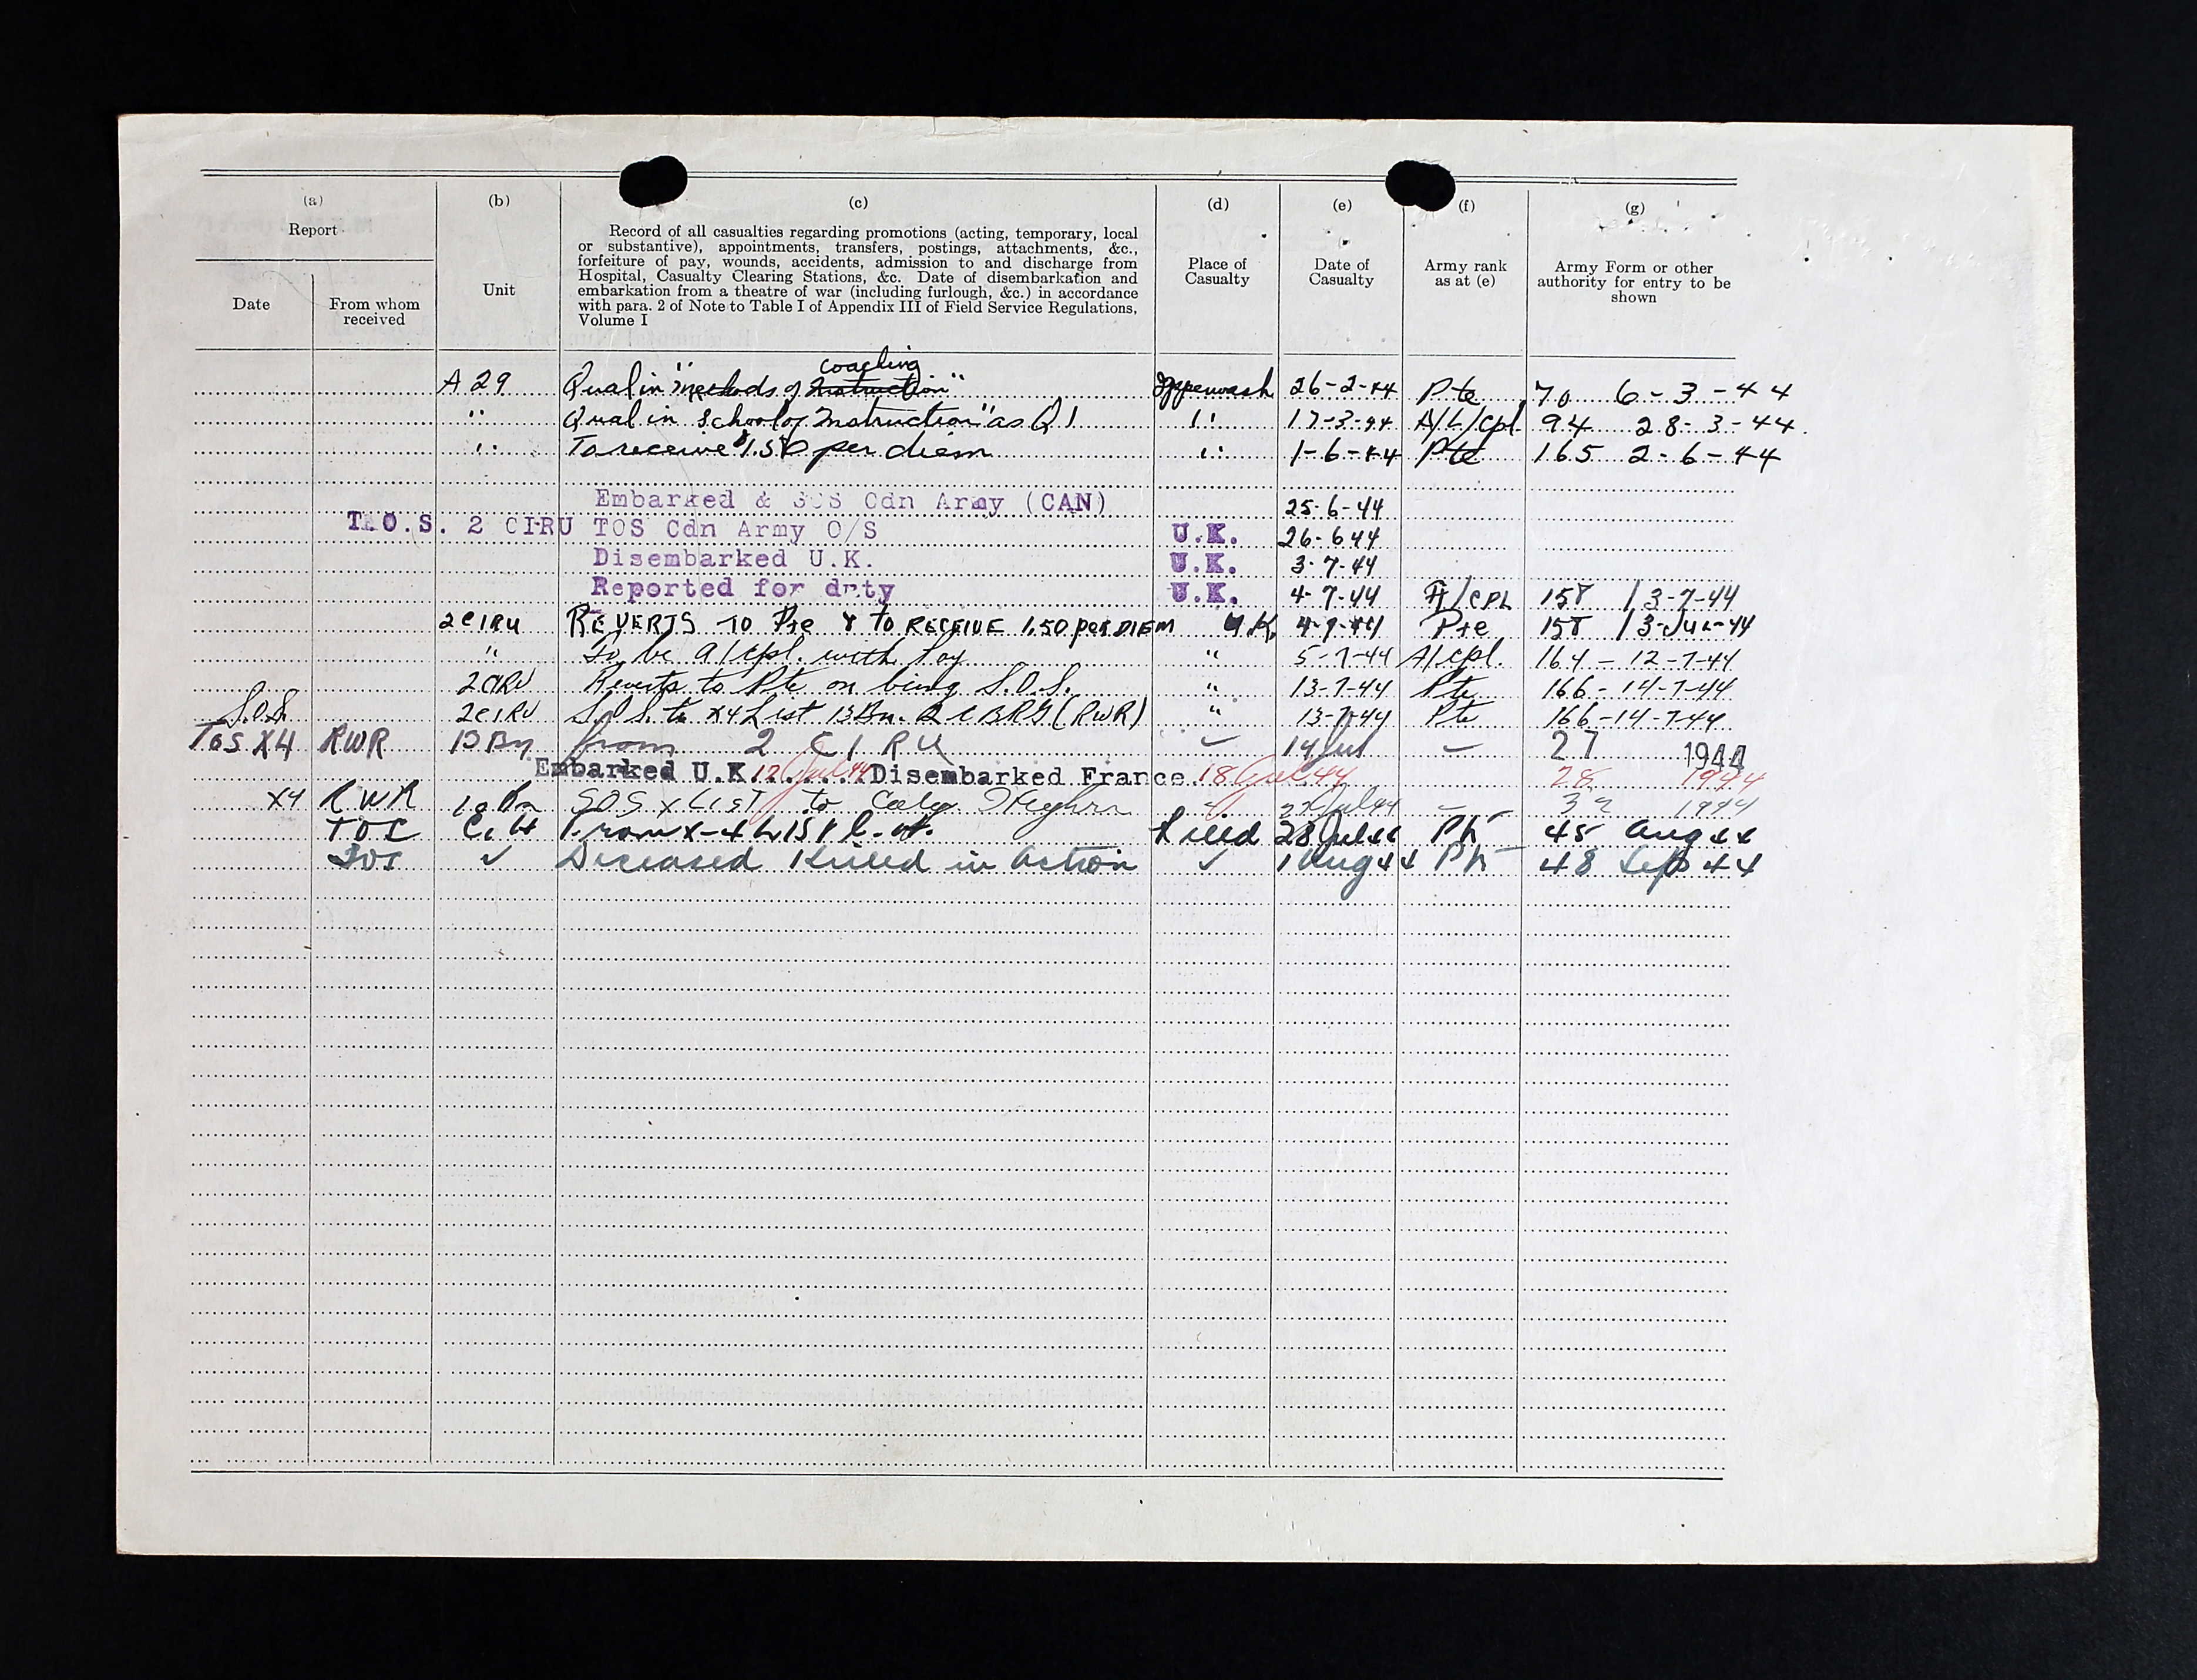 (a)
Report
Date
From whom received
(b)
Unit
(c)
Record of all casualties regarding promotions (acting, temporary, local
or substantive), appointments, transfers, postings, attachments, &c.,
forfeiture of pay, wounds, accidents, admission to and discharge from
Hospital, Casualty Clearing Stations, &c. Date of disembarkation and
embarkation from a theatre of war (including furlough, &c.) in accordance
with para. 2 of Note to Table I of Appendix III of Field Service Regulations,
Volume I
(d)
Place of
Casualty
(e)
Date of
Casualty
(f)
Army rank
as at (e)
(g)
Army Form or other
authority for entry to be
shown
coaching
A 29 Qual in "methods of Instruction" Ipperwash 26-2-44 Pte 70 6-3-44
" Qual in School of Instruction" as Q1 " 17-3-44 A/L/Cpl 94 28-3-44.
" To receive $1.50 per diem " 1-6-44 Pte 165 2-6-44
Embarked & SOS Cdn Army (CAN) 25-6-44
T.O.S. 2 CIRU TOS Cdn Army O/S U.K. 26-6-44
Disembarked U.K. U.K. 3-7-44
Reported for duty U.K. 4-7-44 A/CPL 158 / 3-7-44
2CIRU REVERTS TO Pte & TO RECEIVE 1.50 per DIEM U.K. 4-7-44 Pte 158 / 3-JUL-44
" To be A/Cpl. with Pay " 5-7-44 A/Cpl. 164 - 12-7-44
2CIRU Reverts to Pte on being S.O.S. " 13-7-44 Pte 166-14-7-44
S.O.S. 2CIRU S.O.S. to X4 List 13 Bn. 2 C BRG (RWR) " 13-7-44 Pte 166-14-7-44
TOS X4 RWR 13 Bn from 2 CIRU 14 Jul 27 1944
Embarked U.K. Jul 44 Disembarked France 18 Jul 44 28 1944
X4 RWR SOS x List to Calg Jul 44 1944
C.H From X-4 List Field 28 Jul 44 45 Aug 44
SOS ✓ Deceased Killed in Action ✓ 1 Aug 44 48 Sep 44